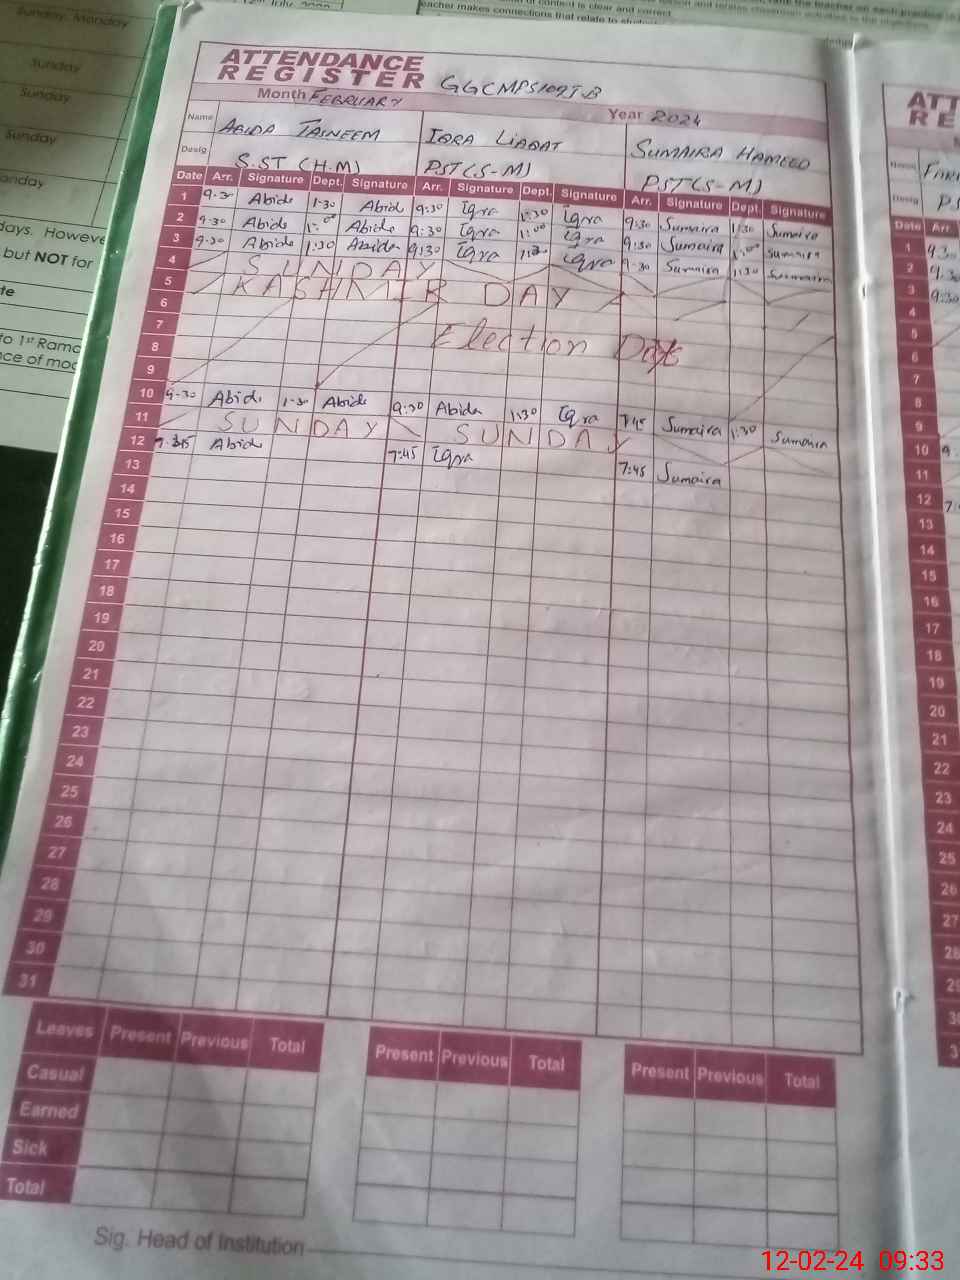 Sunday, Monday
Sunday
Sunday
Sunday
days. However
but NOT for
to 1st Rama
of content is clear and correct.
eacher makes connections that relate to
ATTENDANCE
REGISTER GGCMPS109T.B
Month FEBRUARY Year 2024
Name ABIDA TASNEEM IQRA LIAQAT SUMAIRA HAMEED
Desig S.ST (H.M) PST(S-M) PST(S-M)
Date Arr. Signature Dept. Signature Arr. Signature Dept. Signature Arr. Signature Dept. Signature
1 9-30 Abida 1-30 Abida 9:30 Iqra 1:30 Iqra 9:30 Sumaira 1:30 Sumaira
2 9-30 Abida 1:00 Abida 9:30 Iqra 1:00 Iqra 9:30 Sumaira 1:00 Sumaira
3 9-30 Abida 1:30 Abida 9:30 Iqra 1:30 Iqra 9-30 Sumaira 1:30 Sumaira
4 SUNDAY
5 KASHMIR DAY
6
7 Election Days
8
9
10 9-30 Abida 1-30 Abida 9:30 Abida 1:30 Iqra 7:45 Sumaira 1:30 Sumaira
11 SUNDAY SUNDAY
12 Abida 7:45 Iqra 7:45 Sumaira
13
14
15
16
17
18
19
20
21
22
23
24
25
26
27
28
29
30
31
Leaves Present Previous Total Present Previous Total Present Previous Total
Casual
Earned
Sick
Total
Sig. Head of Institution
ATT
RE
Name
Desig PS
Date Arr
1 9.30
2 9.30
3 9:30
4
5
6
7
8
9
10 9
11
12 7
13
14
15
16
17
18
19
20
21
22
23
24
25
26
27
28
29
12-02-24 09:33